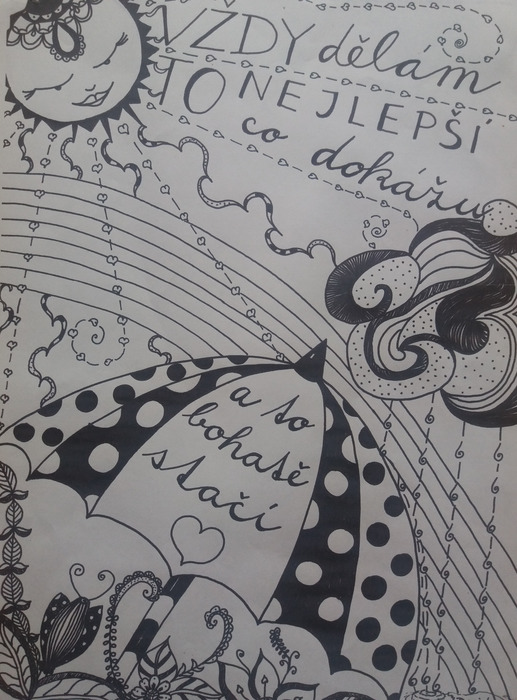 VŽDY dělám
TO NEJLEPŠÍ
co dokážu
a to
bohatě
stačí